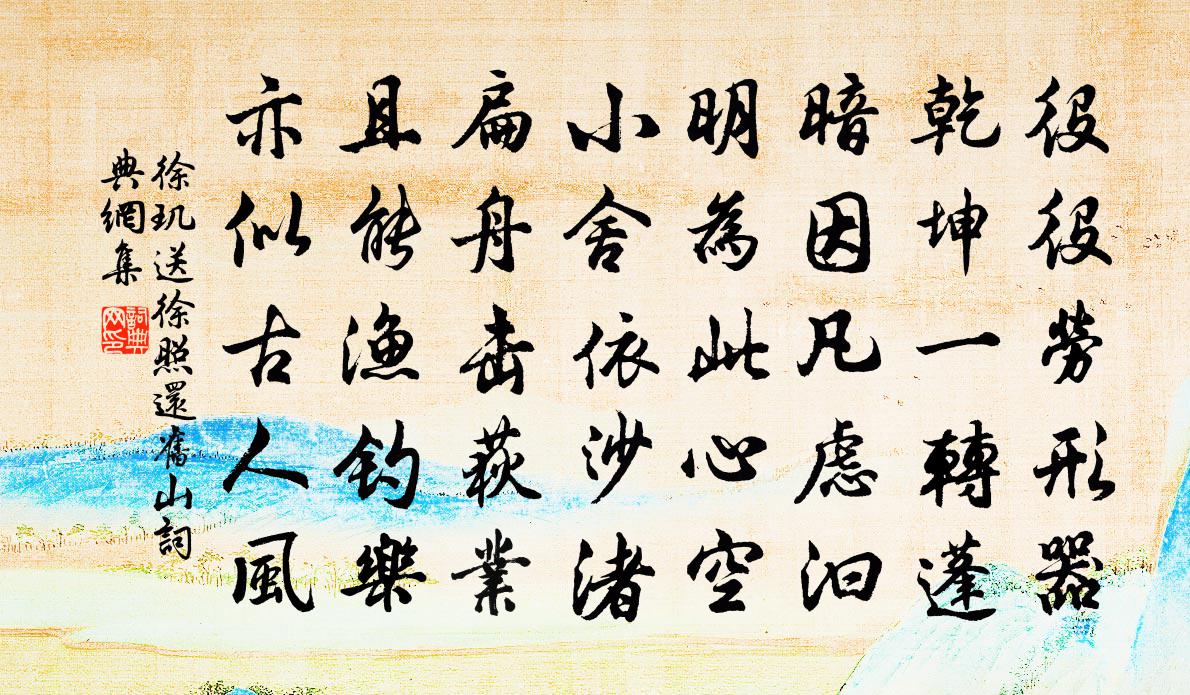 役役勞形器
乾坤一轉蓬
暗因凡慮汩
明為此心空
小舍依沙渚
扁舟荻業
且能漁釣樂
亦似古人風
徐玑送徐照還舊山詞
典網集
詞典
网印